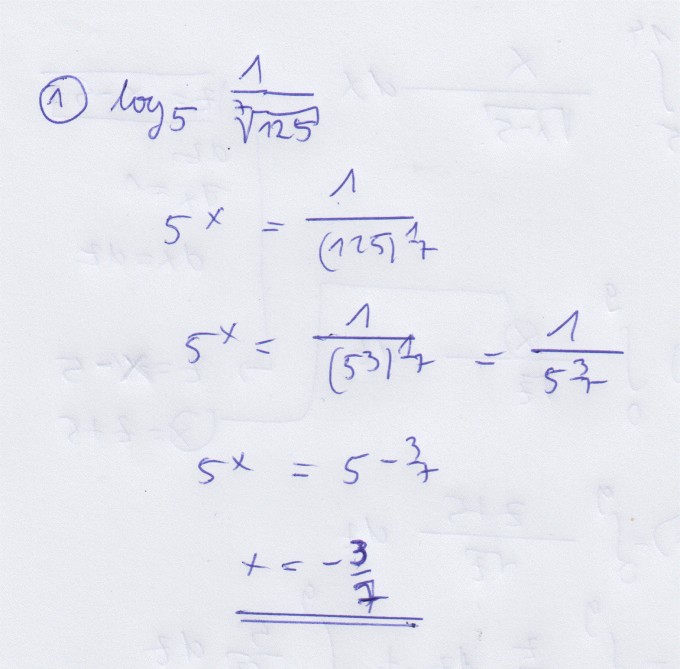 ① log₅ 1/⁷√125
5^x = 1/(125)^1/7
5^x = 1/(5^3)^1/7 = 1/5^3/7
5^x = 5^-3/7
x = -3/7